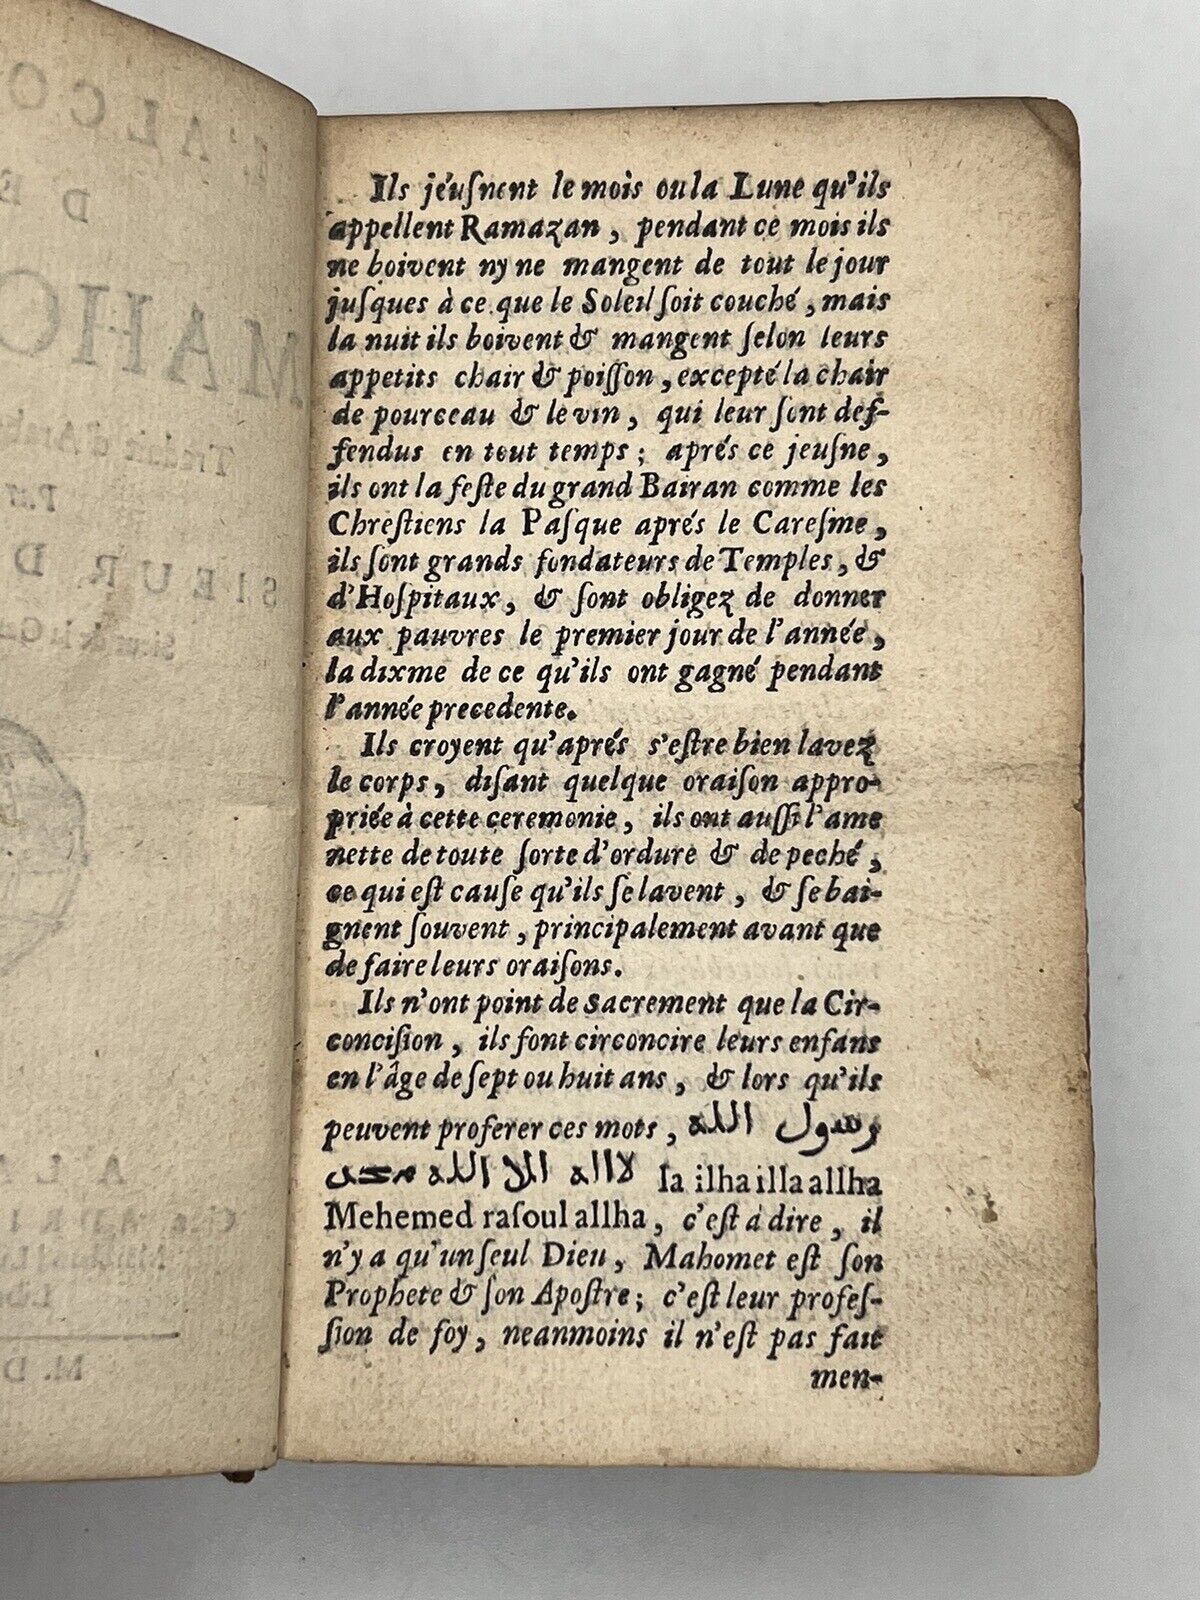 Ils jéuſnent le mois ou la Lune qu'ils
appellent Ramazan, pendant ce mois ils
ne boivent ny ne mangent de tout le jour
juſques à ce que le Soleil ſoit couché, mais
la nuit ils boivent & mangent ſelon leurs
appetits chair & poiſſon, excepté la chair
de pourceau & le vin, qui leur ſont def-
fendus en tout temps; aprés ce jeuſne,
ils ont la feſte du grand Bairan comme les
Chreſtiens la Paſque aprés le Careſme,
ils ſont grands fondateurs de Temples, &
d'Hoſpitaux, & ſont obligez de donner
aux pauvres le premier jour de l'année,
la dixme de ce qu'ils ont gagné pendant
l'année precedente.
Ils croyent qu'aprés s'eſtre bien lavez
le corps, diſant quelque oraiſon appro-
priée à cette ceremonie, ils ont auſſi l'ame
nette de toute ſorte d'ordure & de peché,
ce qui eſt cauſe qu'ils ſe lavent, & ſe bai-
gnent ſouvent, principalement avant que
de faire leurs oraiſons.
Ils n'ont point de Sacrement que la Cir-
conciſion, ils font circoncire leurs enfans
en l'âge de ſept ou huit ans, & lors qu'ils
peuvent proferer ces mots, رسول الله
لااله الا الله محمد la ilha illa allha
Mehemed raſoul allha, c'eſt à dire, il
n'y a qu'un ſeul Dieu, Mahomet eſt ſon
Prophete & ſon Apoſtre; c'eſt leur profeſ-
ſion de foy, neanmoins il n'eſt pas fait
men-